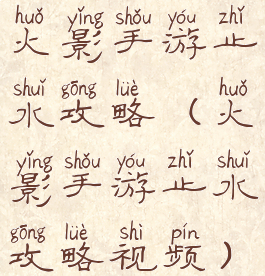 huǒ yǐng shǒu yóu zhǐ
火影手游止
shuǐ gōng lüè huǒ
水攻略（火
yǐng shǒu yóu zhǐ shuǐ
影手游止水
gōng lüè shì pín
攻略视频）